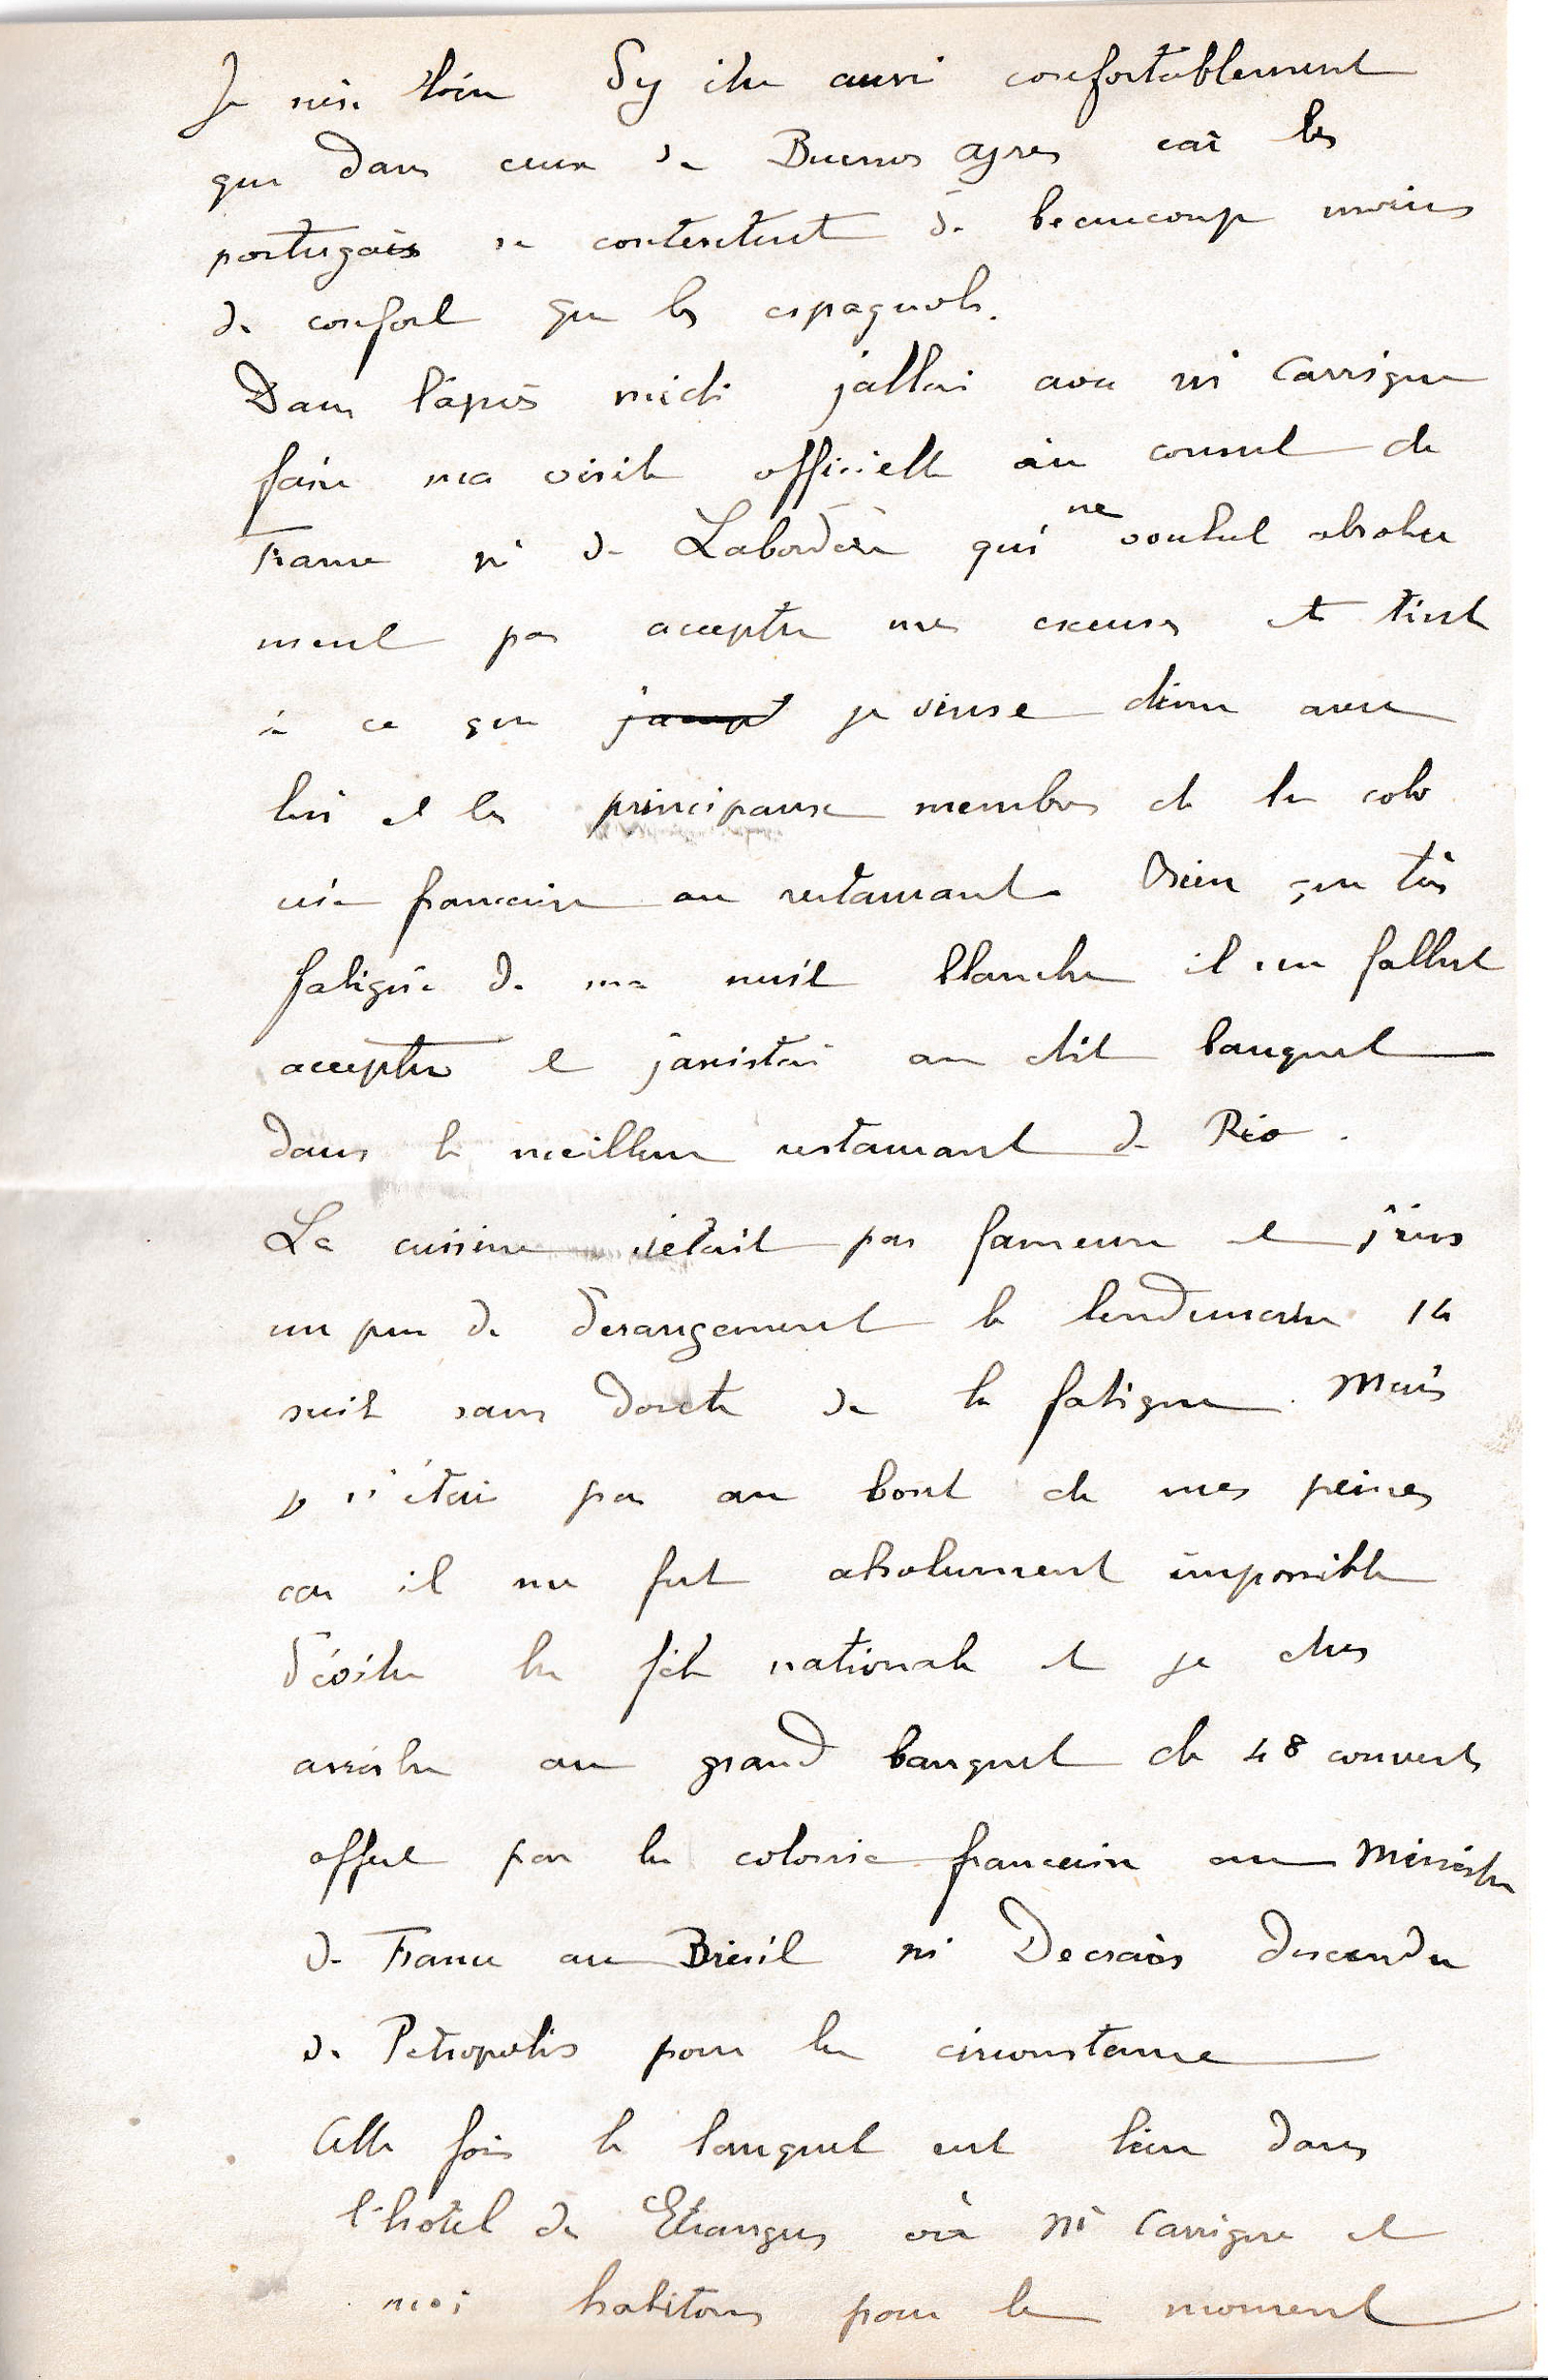 Je suis loin d'y être aussi confortablement
que dans ceux de Buenos Ayres car les
portugais se contentent de beaucoup moins
de confort que les espagnols.
Dans l'après midi j'allai avec Mr Carrigue
faire ma visite officielle au consul de
France Mr de Labordère qui ne voulut absolu
ment pas accepter mes excuses et tint
à ce que je vinsse diner avec
lui et les principaux membres de la colo
nie française au restaurant. Bien que très
fatigué de ma nuit blanche il me fallut
accepter et j'assistai au dit banquet
dans le meilleur restaurant de Rio.
La cuisine n'était pas fameuse et j'eus
un peu de dérangement le lendemain 14
suite sans doute de la fatigue. Mais
je n'étais pas au bout de mes peines
car il me fut absolument impossible
d'éviter la fête nationale et je dus
assister au grand banquet de 48 couverts
offert par la colonie française au Ministre
de France au Brésil Mr Decrais descendu
de Petropolis pour la circonstance
Cette fois le banquet eut lieu dans
l'hôtel des Etrangers où Mr Carrigue et
moi habitons pour le moment